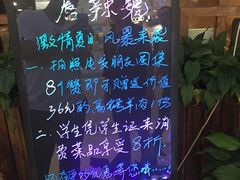 激情夏日 风暴来袭
一、拍照发朋友圈集
8个赞即可赠送价值
36元的高钙羊肉1份
二、学生凭学生证来消
费菜品享受8折